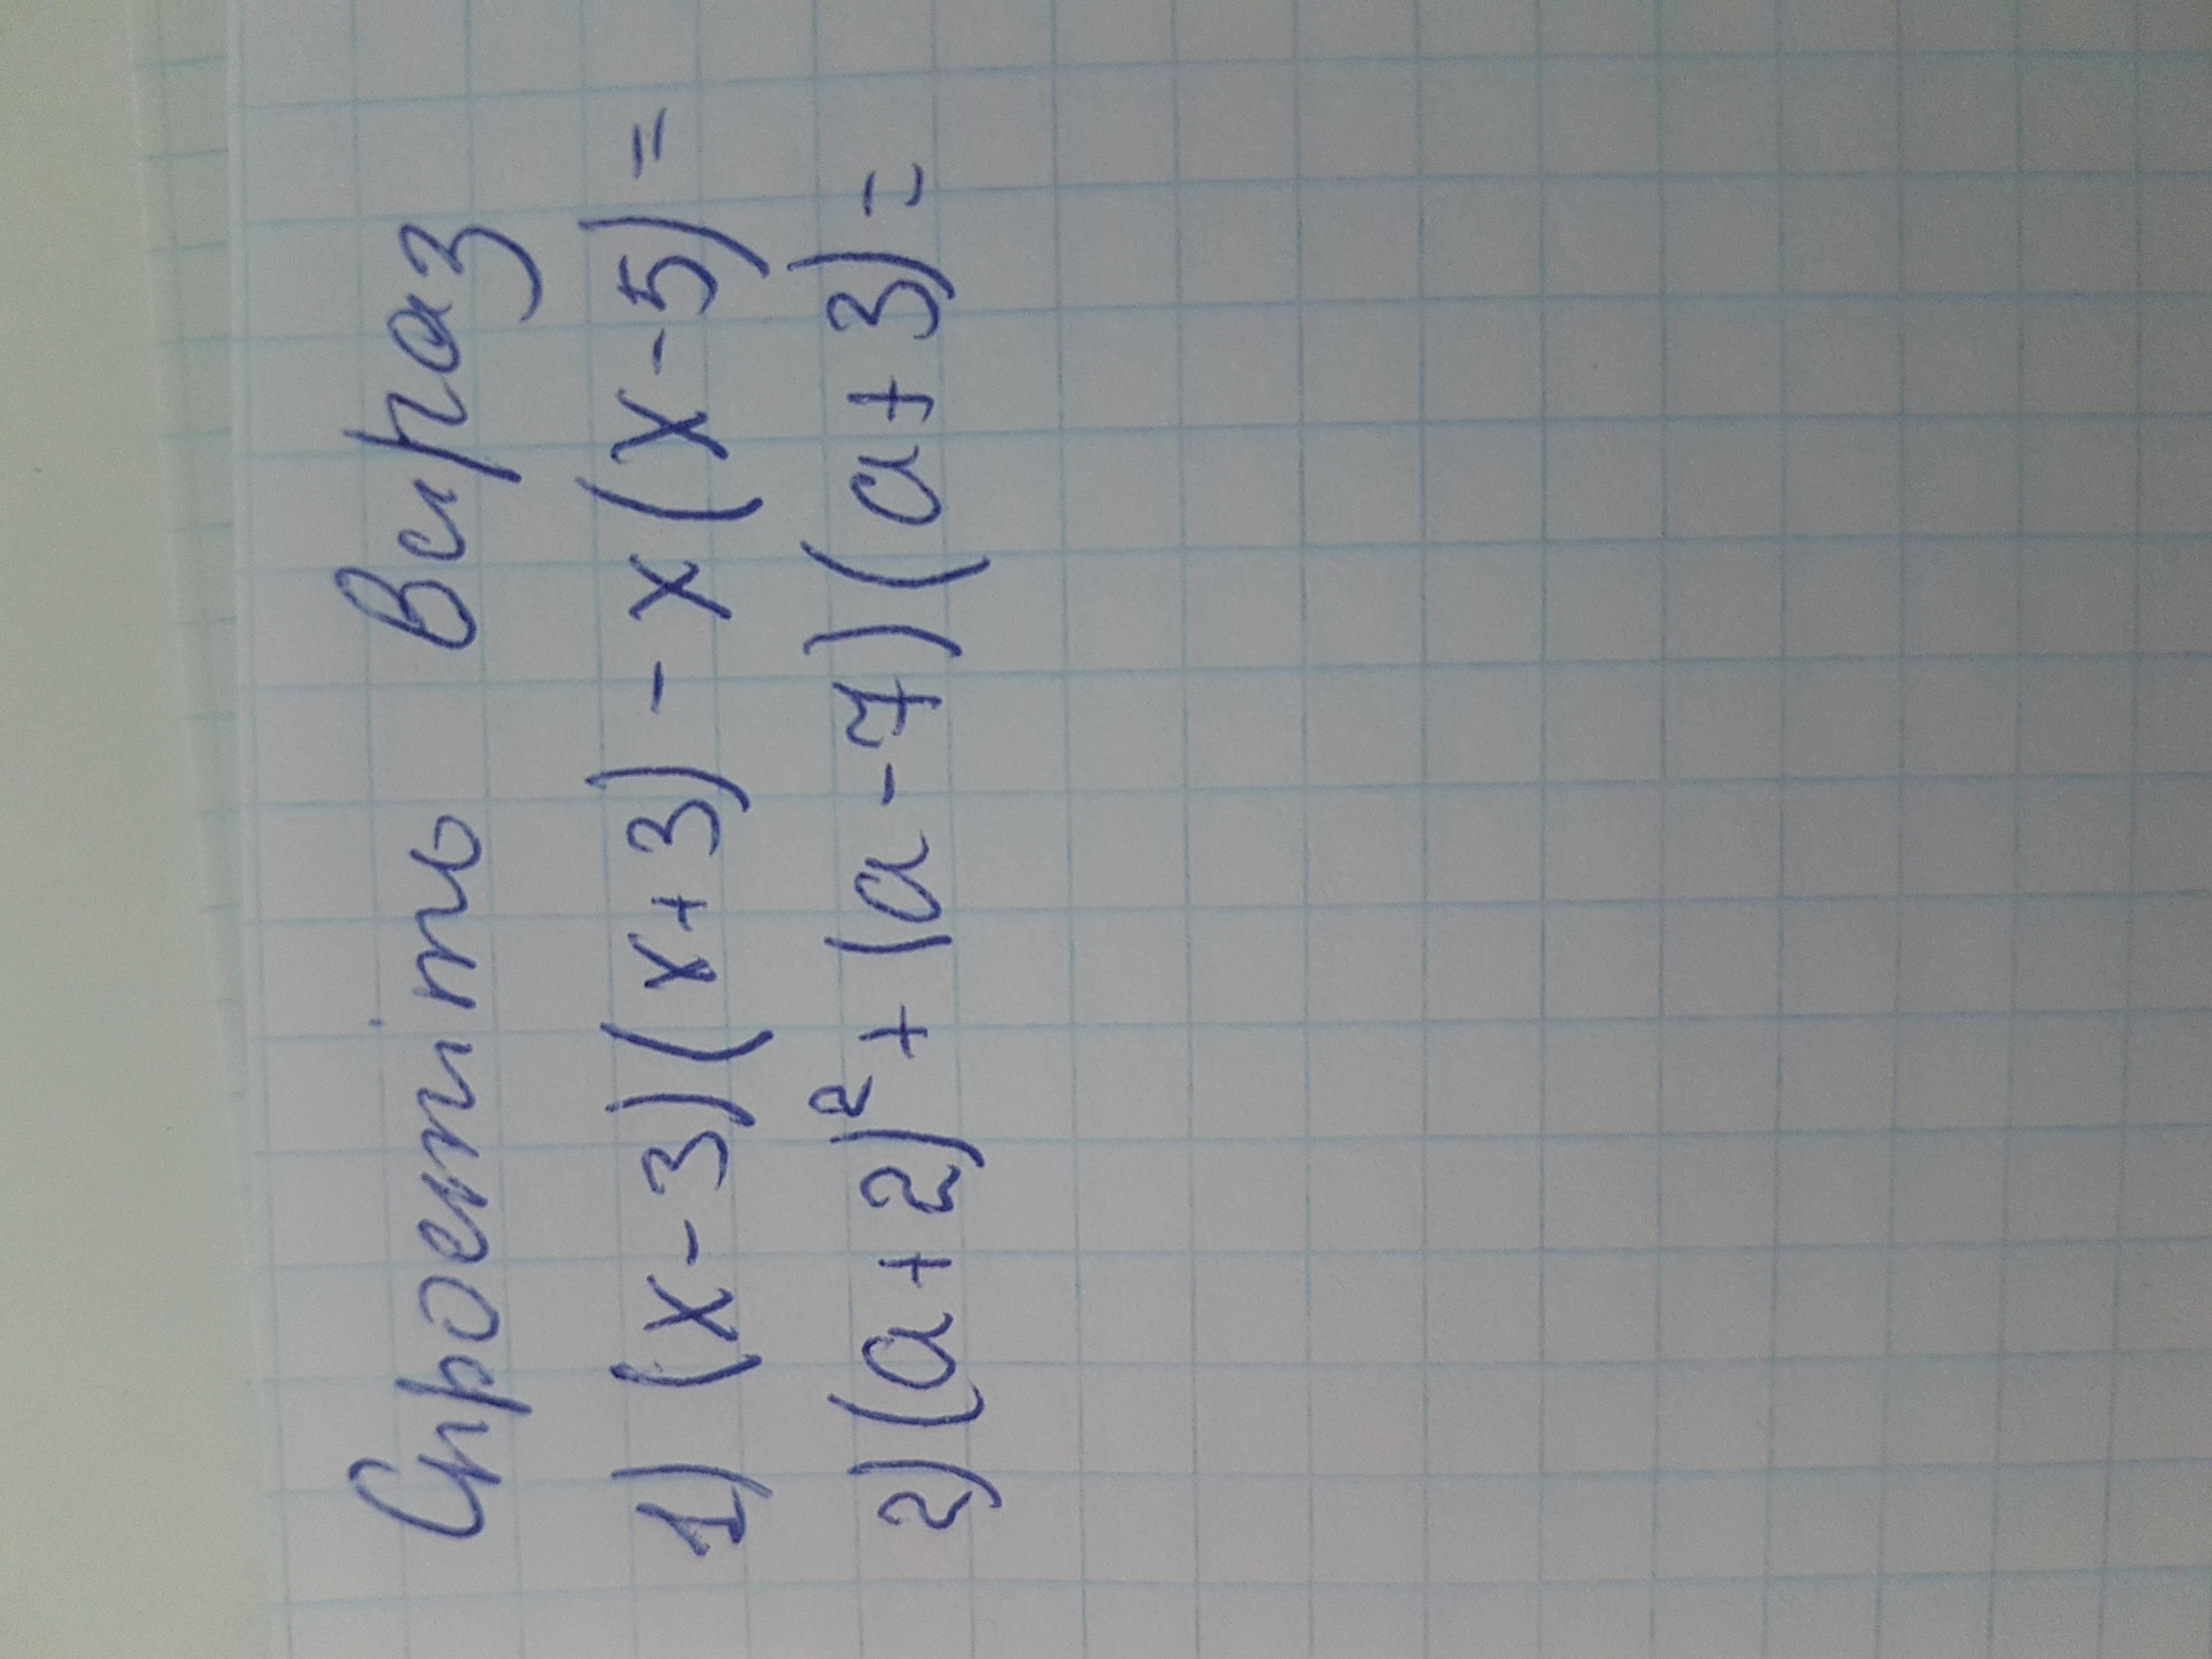 Спростіть Вираз
1) (x-3)(x+3)-x(x-5)=
2)(a+2)²+(a-7)(a+3)=